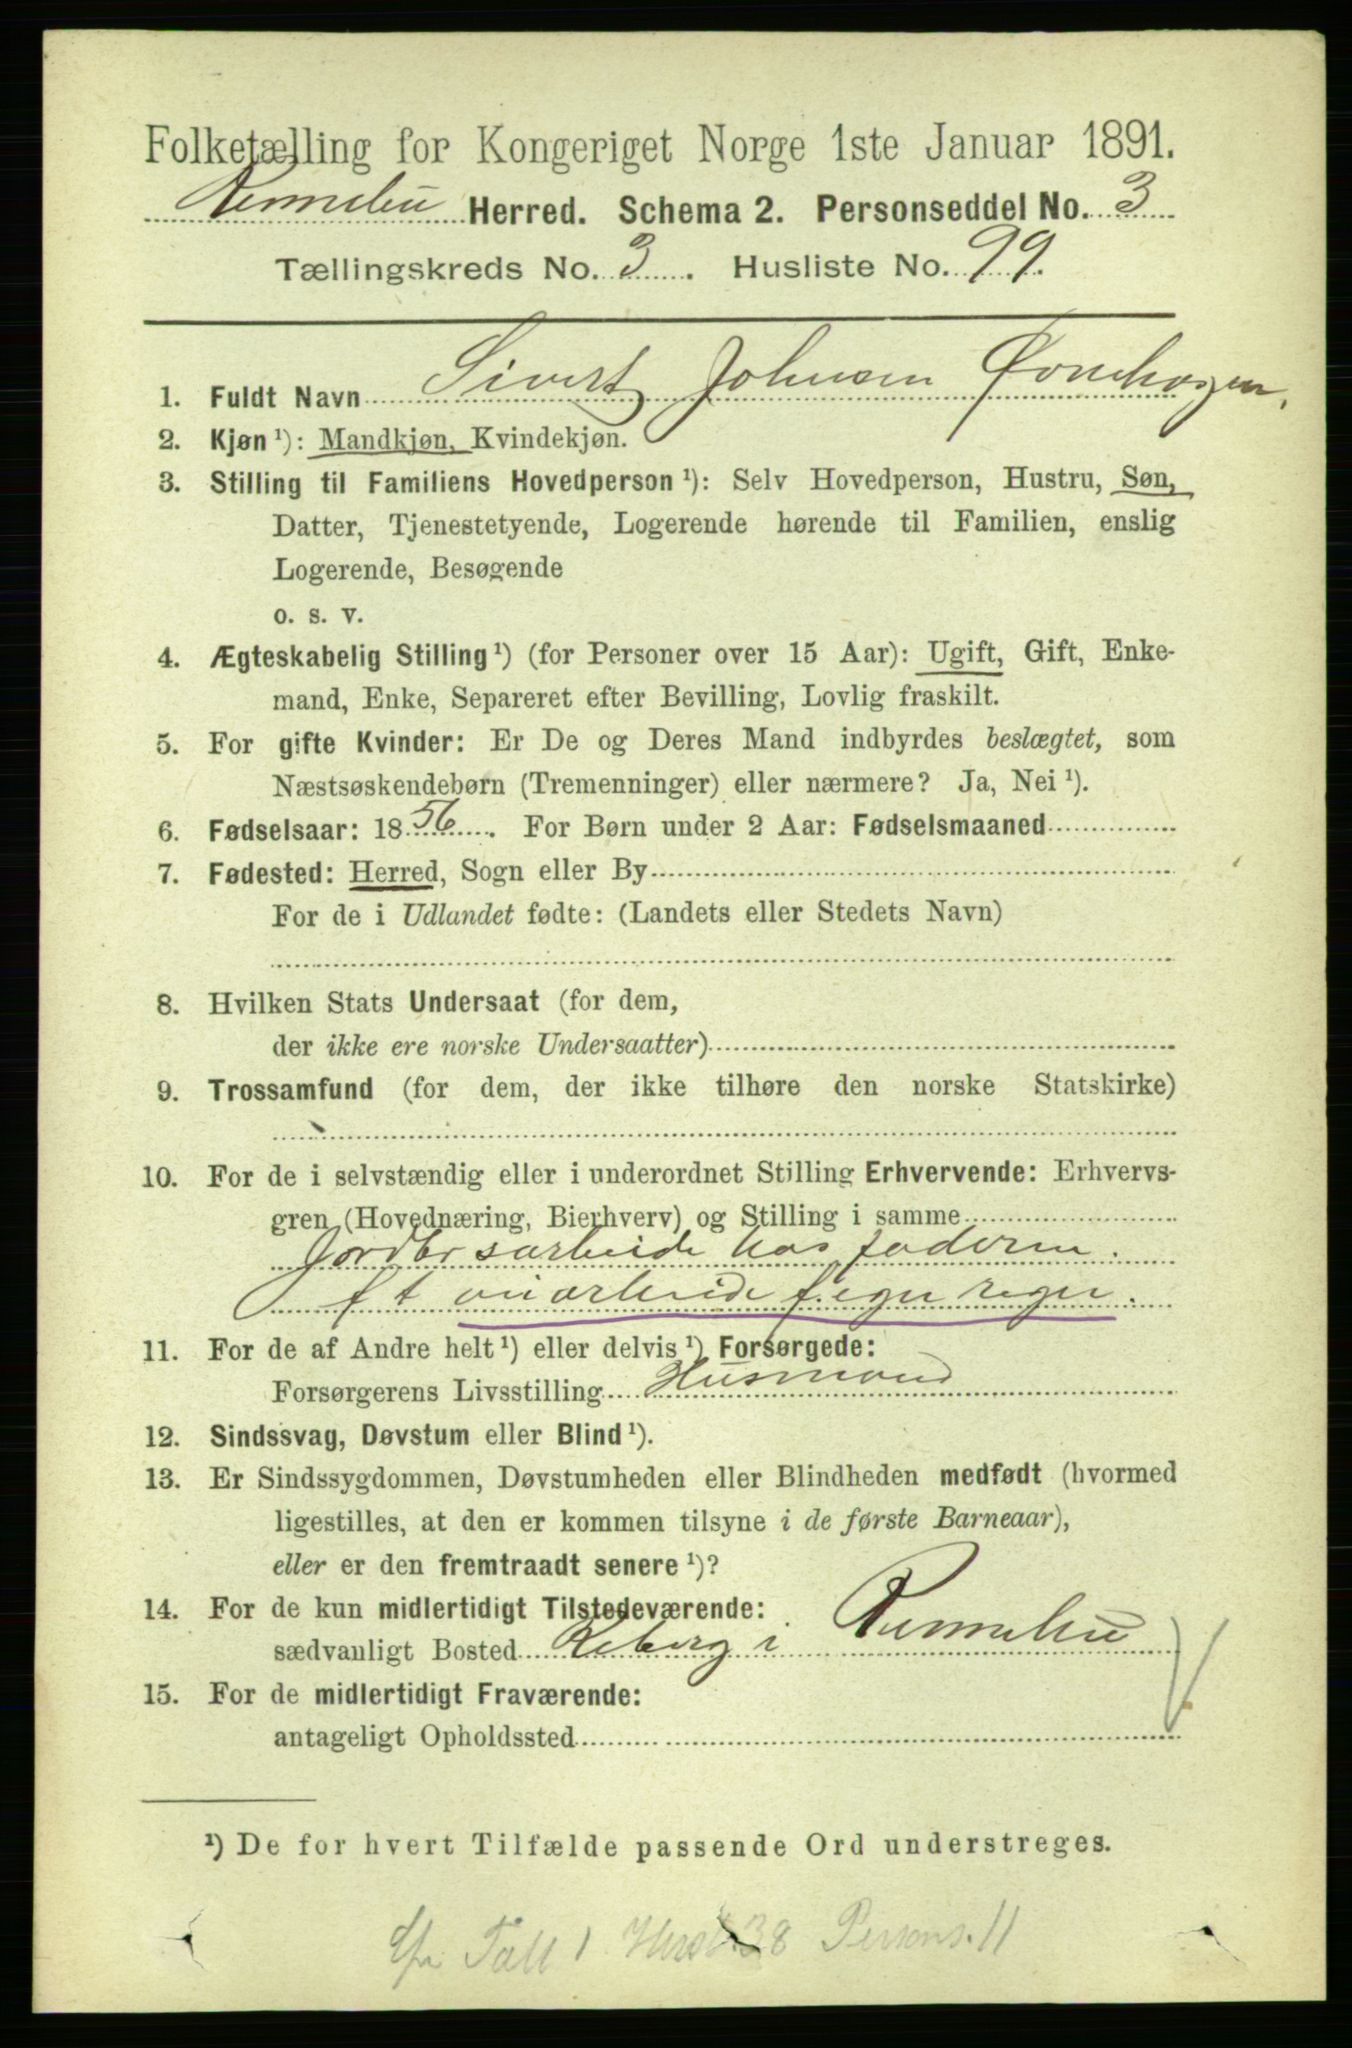 Folketælling for Kongeriget Norge 1ste Januar 1891.
Rennebu Herred. Schema 2. Personseddel No. 3
Tællingskreds No. 3. Husliste No. 99.
1. Fuldt Navn Sivert Johnsen
2. Kjøn ¹): Mandkjøn, Kvindekjøn.
3. Stilling til Familiens Hovedperson ¹): Selv Hovedperson, Hustru, Søn,
Datter, Tjenestetyende, Logerende hørende til Familien, enslig
Logerende, Besøgende
o. s. v.
4. Ægteskabelig Stilling ¹) (for Personer over 15 Aar): Ugift, Gift, Enke-
mand, Enke, Separeret efter Bevilling, Lovlig fraskilt.
5. For gifte Kvinder: Er De og Deres Mand indbyrdes beslægtet, som
Næstsøskendebørn (Tremenninger) eller nærmere? Ja, Nei ¹).
6. Fødselsaar: 1856. For Børn under 2 Aar: Fødselsmaaned
7. Fødested: Herred, Sogn eller By
For de i Udlandet fødte: (Landets eller Stedets Navn)
8. Hvilken Stats Undersaat (for dem,
der ikke ere norske Undersaatter)
9. Trossamfund (for dem, der ikke tilhøre den norske Statskirke)
10. For de i selvstændig eller i underordnet Stilling Erhvervende: Erhvervs-
gren (Hovednæring, Bierhverv) og Stilling i samme
Jordbrsarbeide hos faderen.
f. egen regn.
11. For de af Andre helt ¹) eller delvis ¹) Forsørgede:
Forsørgerens Livsstilling Husmand
12. Sindssvag, Døvstum eller Blind ¹).
13. Er Sindssygdommen, Døvstumheden eller Blindheden medfødt (hvormed
ligestilles, at den er kommen tilsyne i de første Barneaar),
eller er den fremtraadt senere ¹)?
14. For de kun midlertidigt Tilstedeværende:
sædvanligt Bosted Reberg i Rennebu
15. For de midlertidigt Fraværende:
antageligt Opholdssted
¹) De for hvert Tilfælde passende Ord understreges.
Tall 1 Husl. 38 Persons. 11